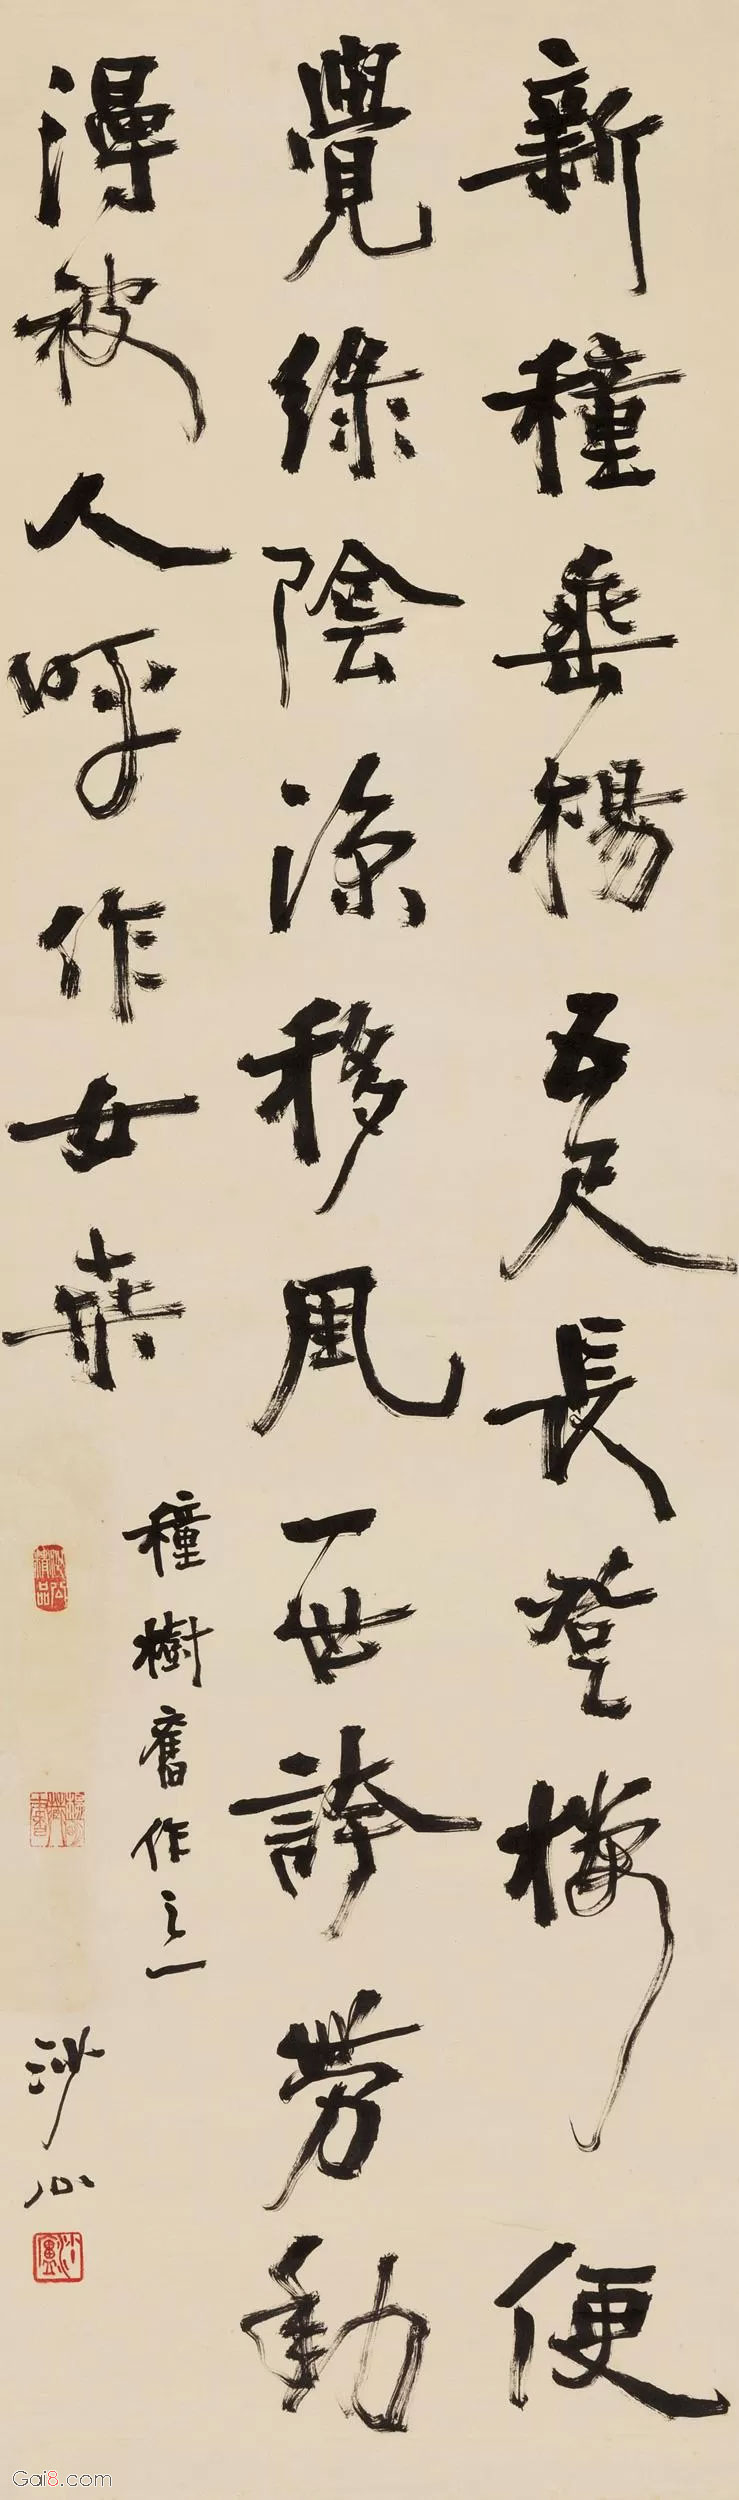 新種垂楊五尺長登樓便
覺綠陰涼移風一世誇勞動
漫被人呼作女桑
種樹舊作之一
沙公
Gai8.com